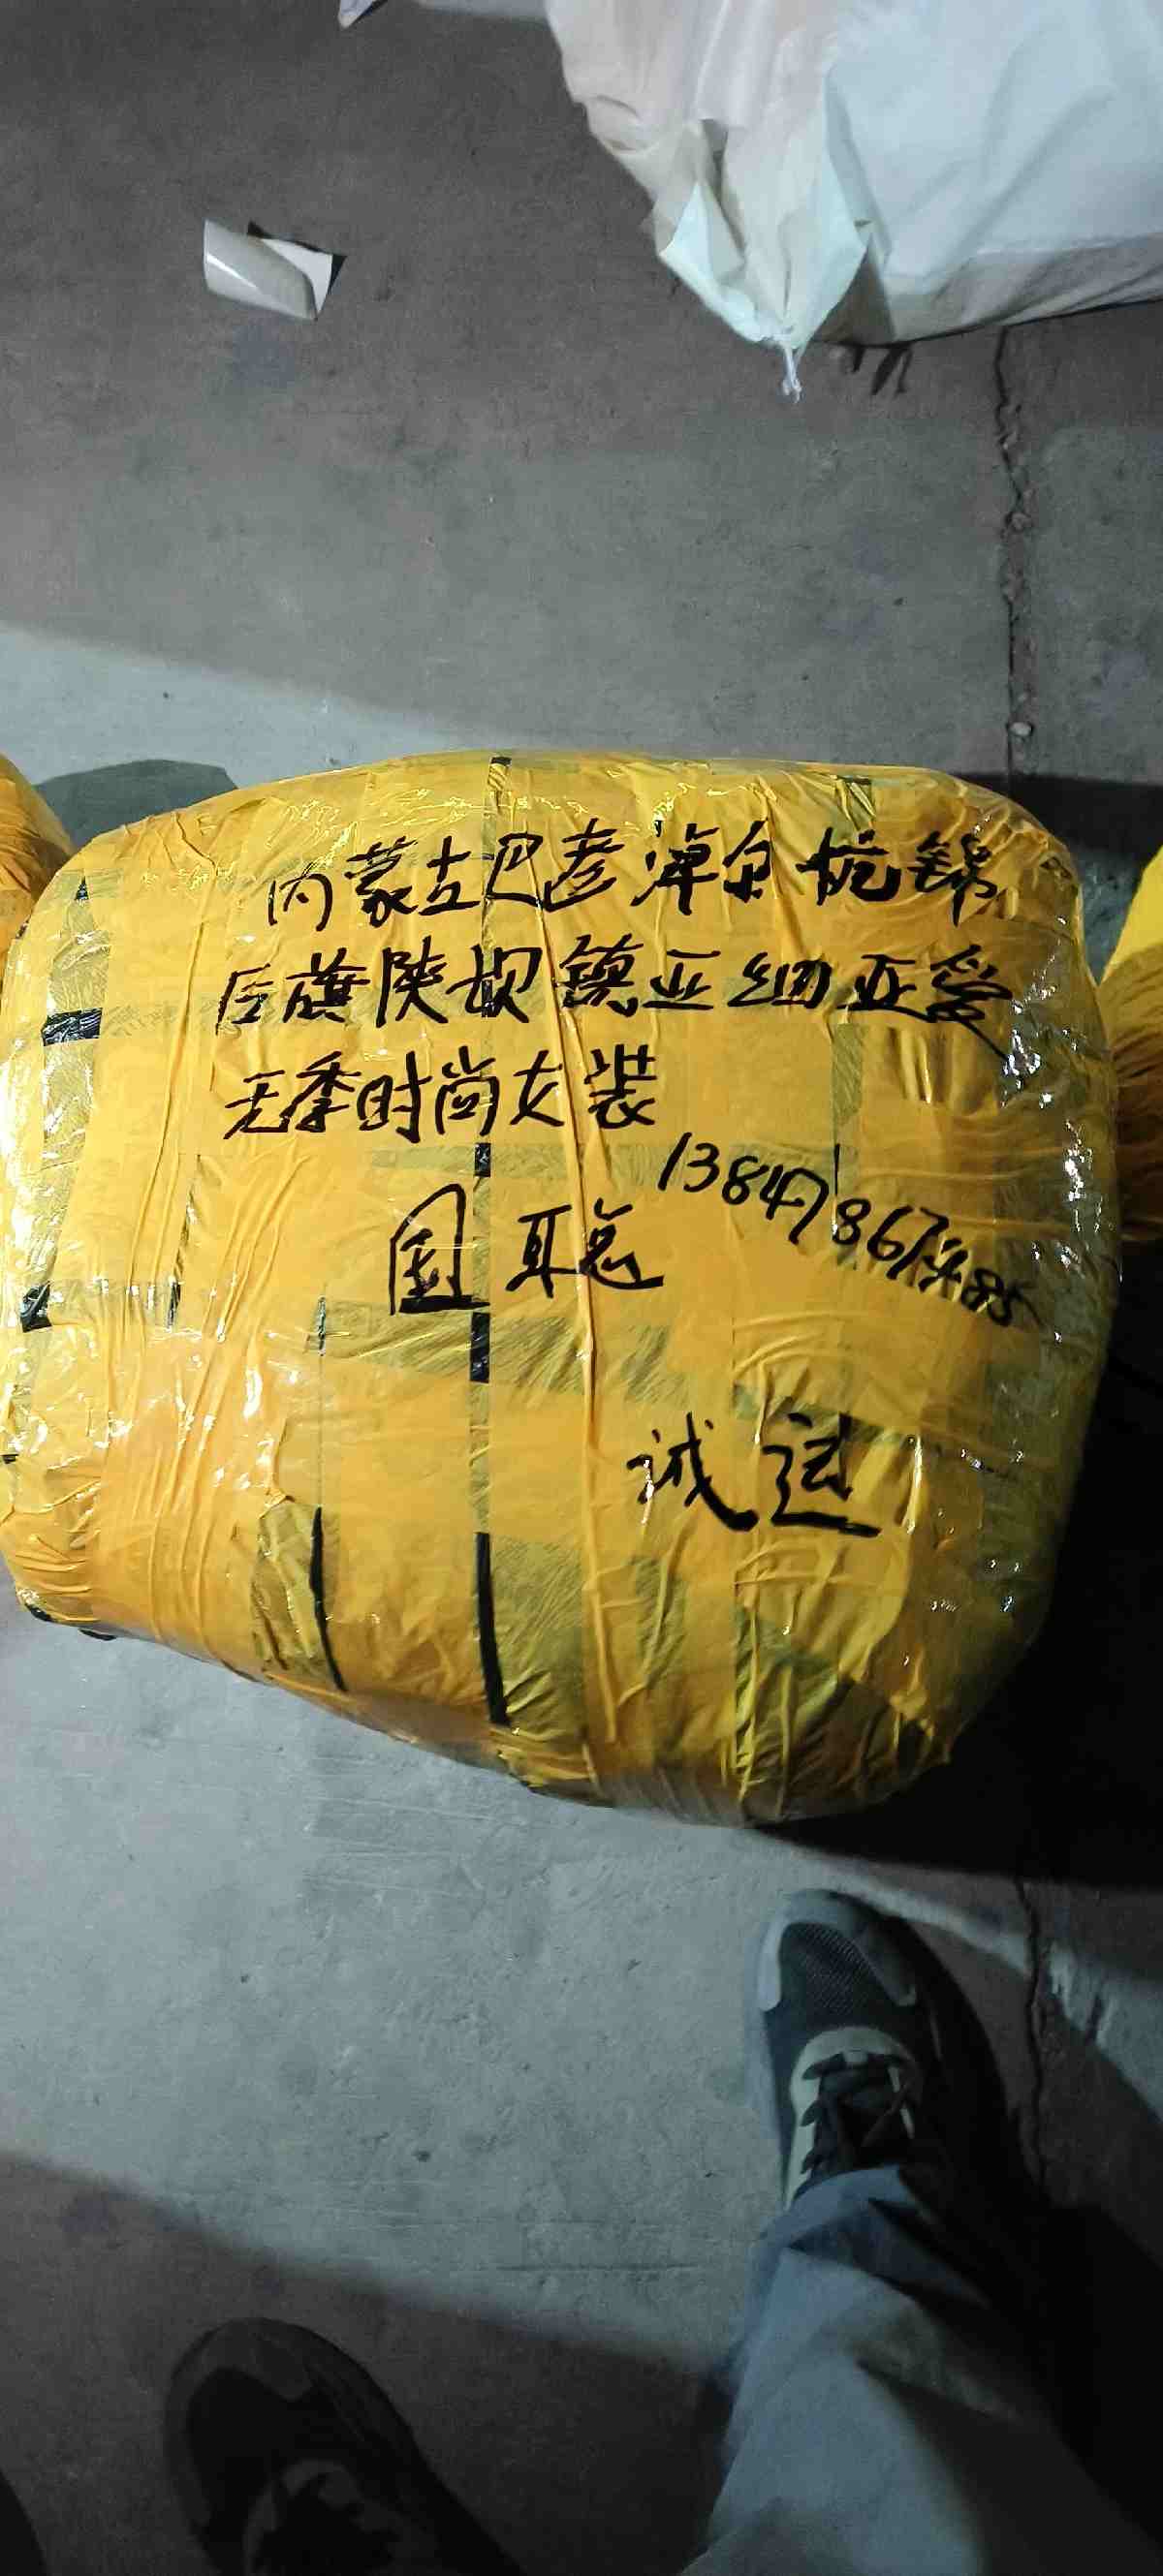 内蒙古巴彦淖尔杭锦
后旗陕坝镇亚细亚爱
无季时尚女装
国聪
诚运